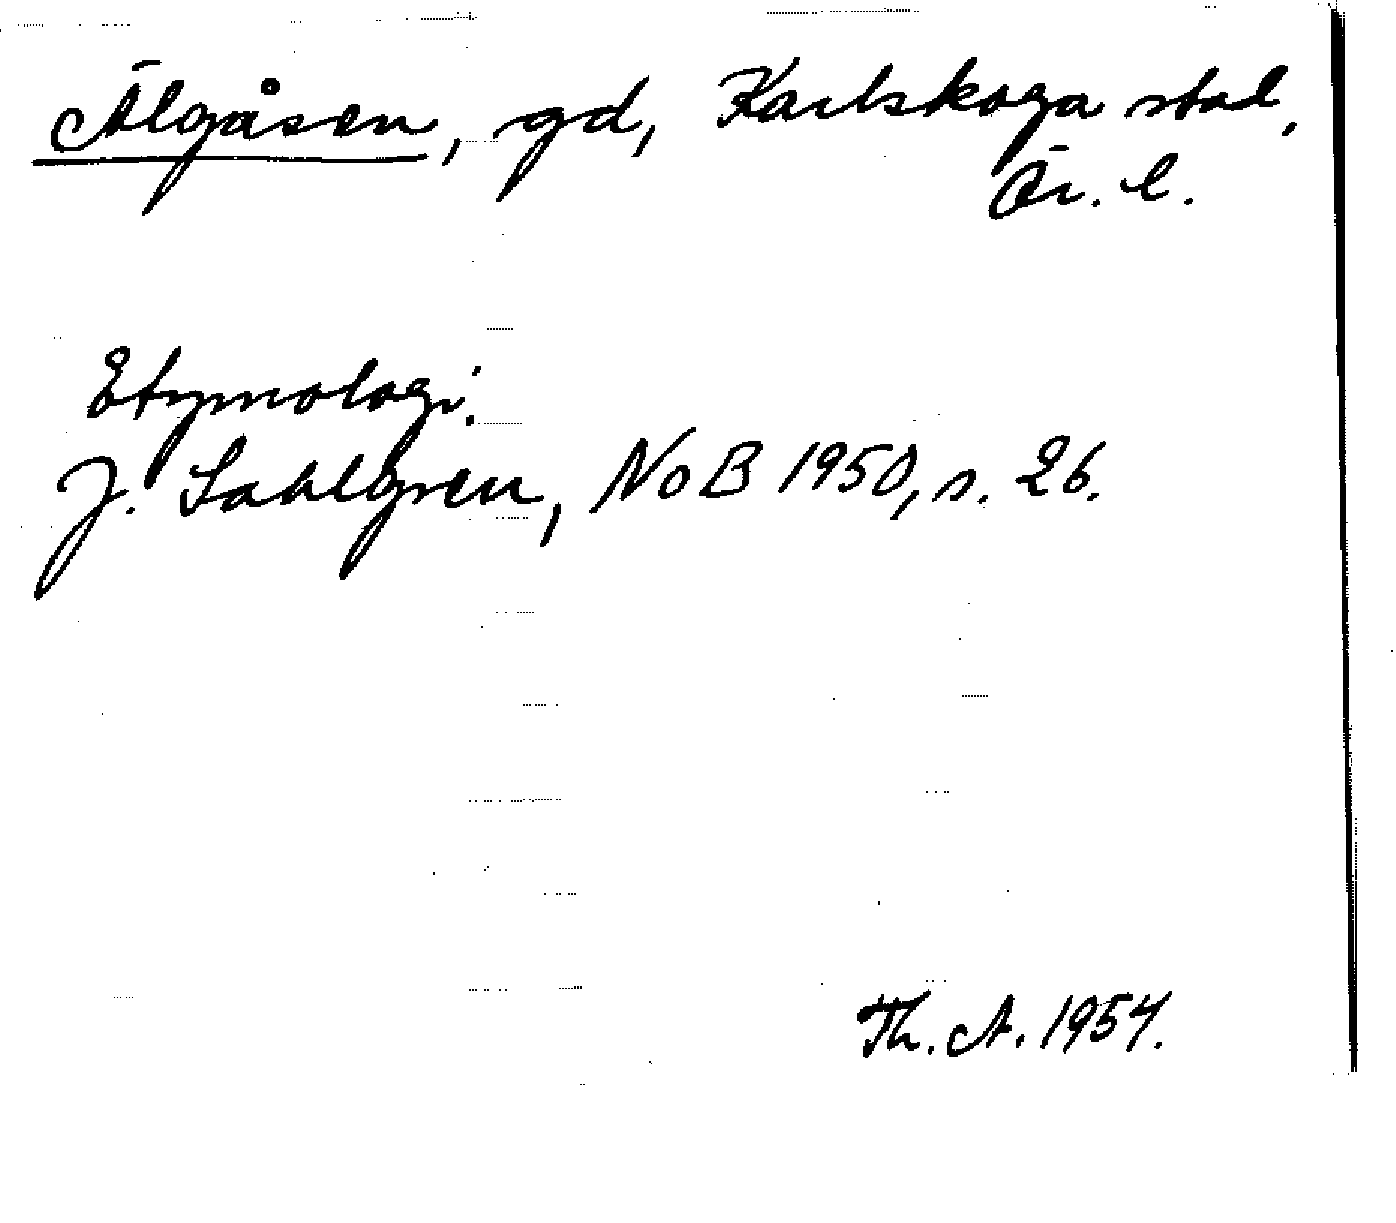 Älgåsen, gd, Karlskoga stad,
Ör. l.
Etymologi.
J. Sahlgren, NoB 1950, s. 26.
Th. A. 1954.